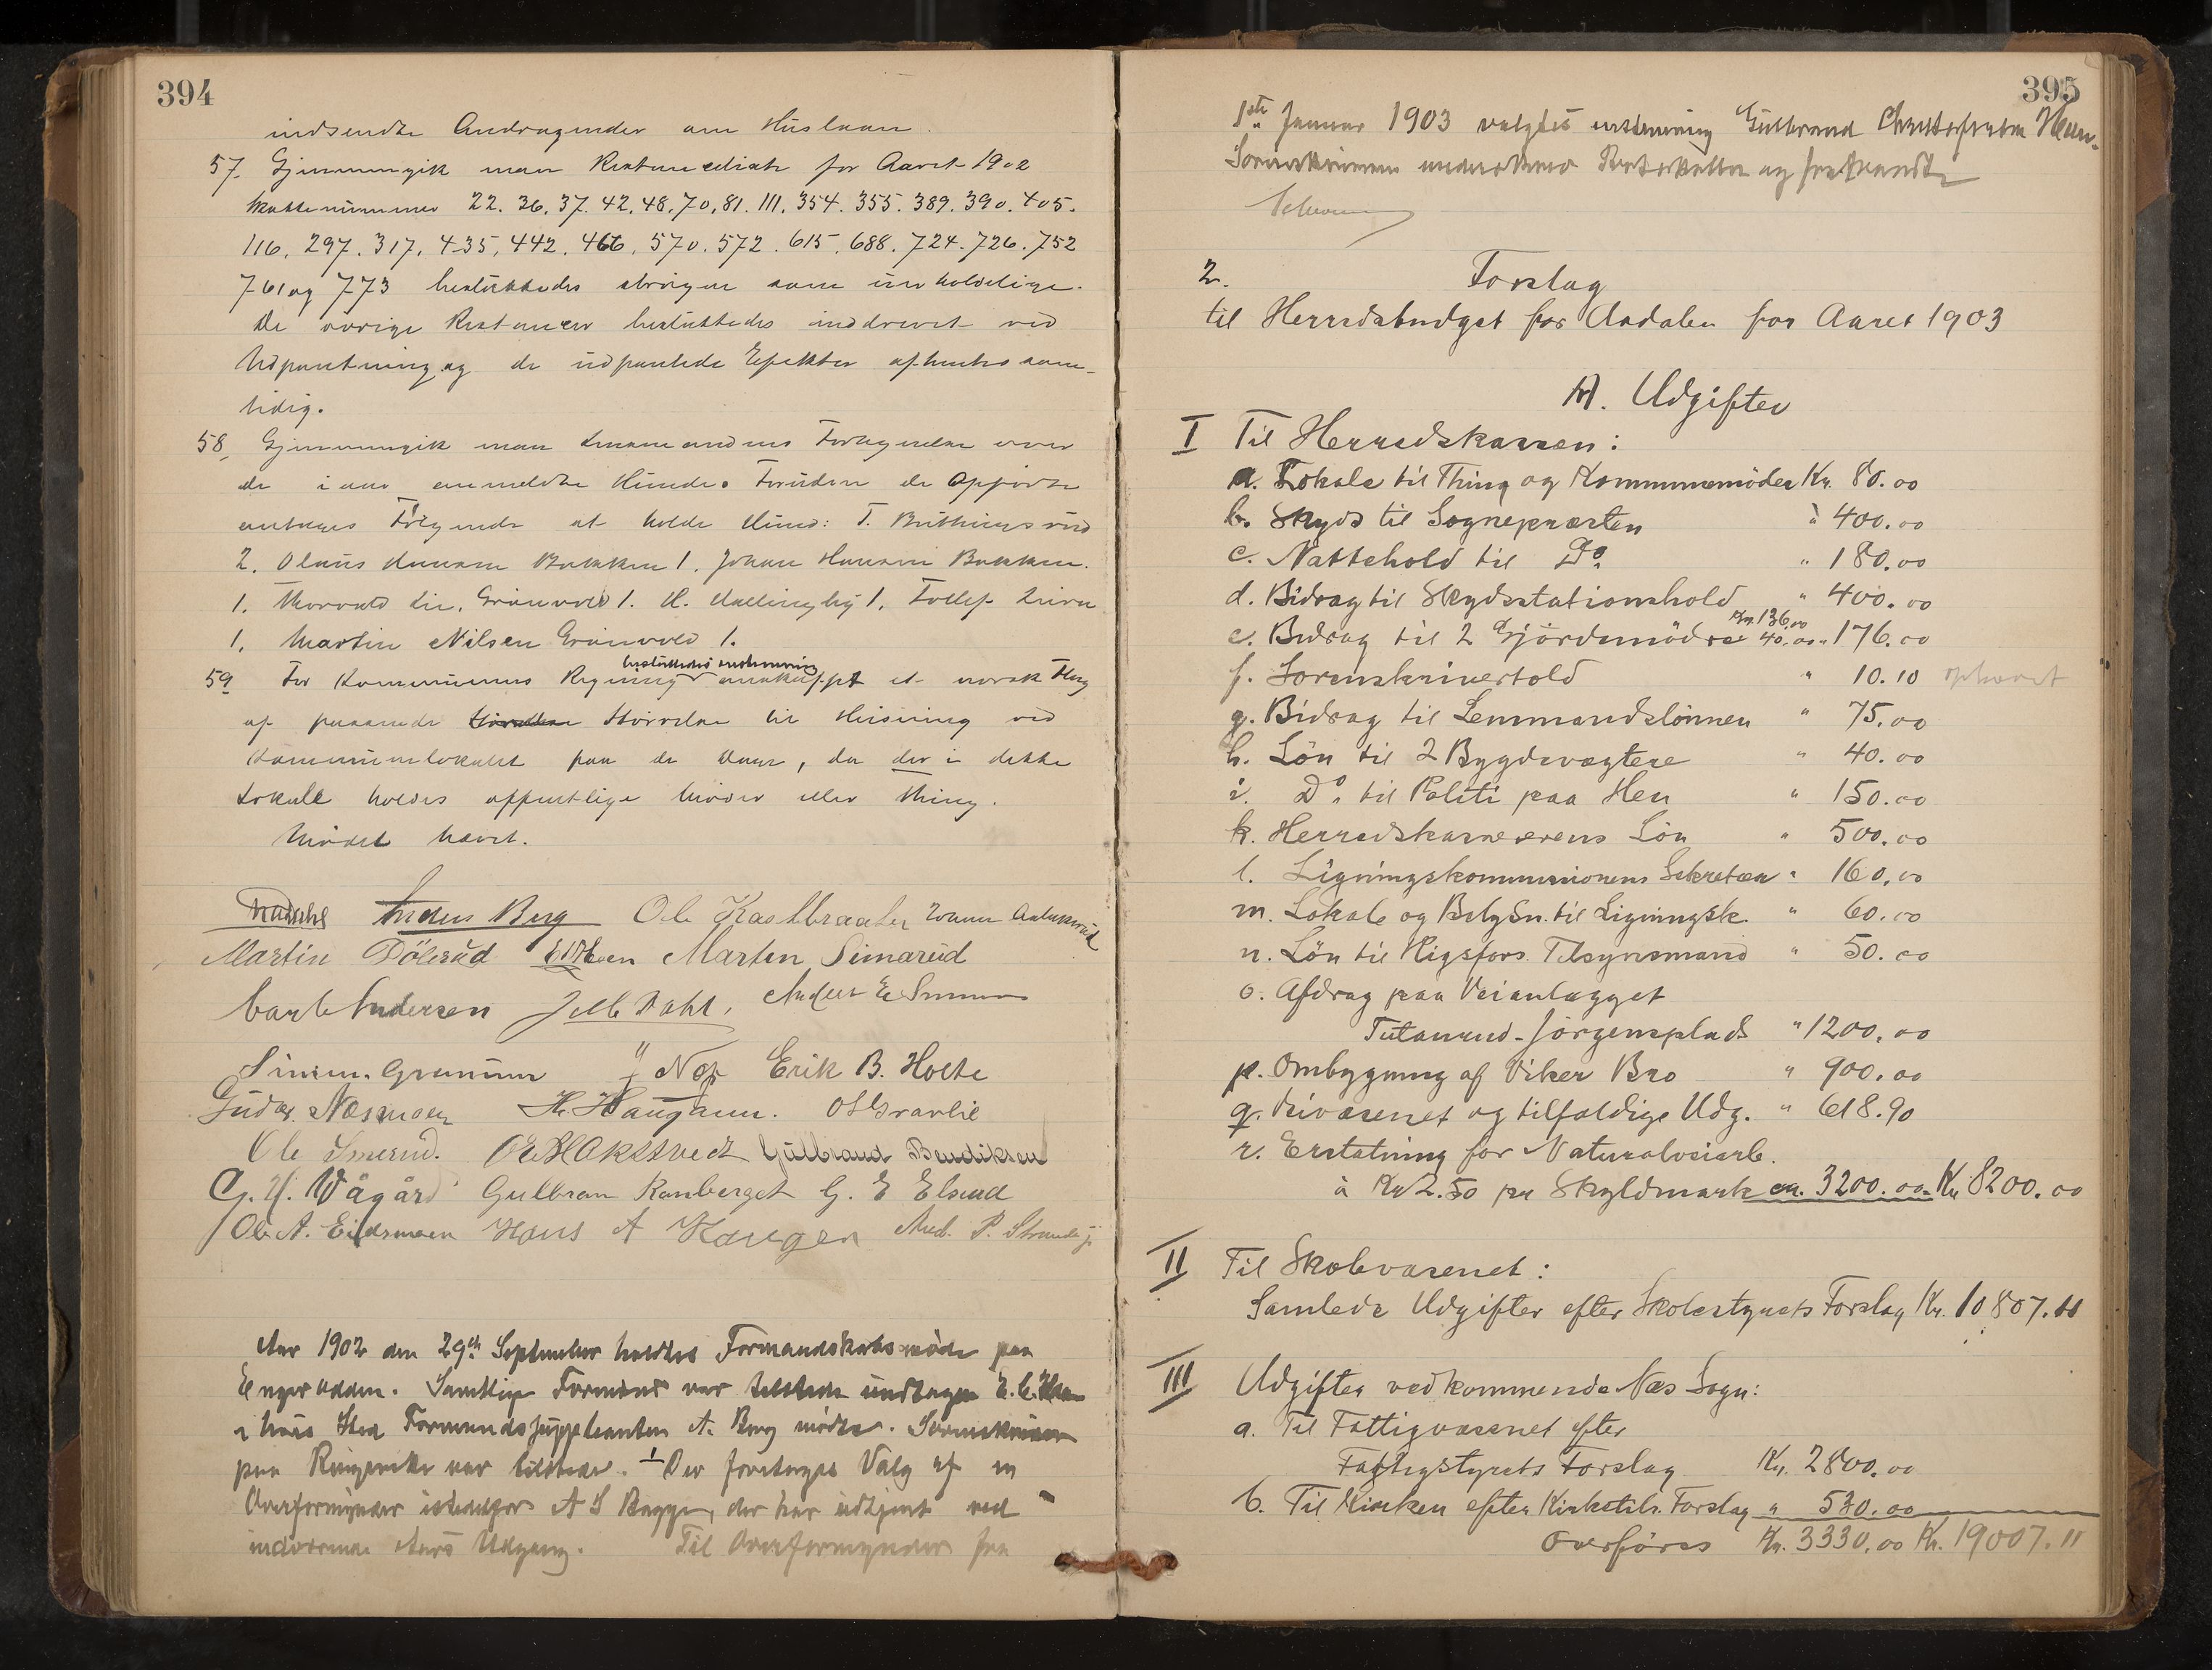 394
indsendte Andragender om Huslaan.
57. Gjennemgik man Restanceliste for Aaret 1902
Skattenummer 22. 36. 37. 42. 48. 70. 81. 111. 354. 355. 389. 390. 405.
116. 297. 317. 435. 442. 466. 570. 572. 615. 688. 724. 726. 752
761 og 773 besluttedes
De øvrige Restancer besluttedes inddrevet ved
Udpantning og de udpantede Effekter afhentes sam-
tidig.
58. Gjennemgik man Fortegnelse over
de i aar anmeldte Hunde. Foruden de Opførte
antages Følgende at holde Hund: T. Bruthingsrud
2. Olaus Hansen Bakken 1. Johan Hansen Bakken.
1. Thorvald Grönvold 1. H. Hallingby 1. Tollef
1. Martin Nilsen Grönvold 1.
besluttedes enstemmig
59 For Kommunens Regning et norsk Flag
af passende Størrelse til Heisning ved
Kommunelokalet paa de Dage, da der i dette
Lokale holdes offentlige Møder eller Thing.
Mødet hævet.
Anders Berg Ole Kastbraaten
Martin Dölerud Marten Simarud
Carl Andersen J Dahl.
Simen Granum Erik B. Holte
Gudbr. Næsmoen H. Haugann. O Gravlie
Ole Smerud. Gulbrand Bendiksen
G. H. Vågård Gulbran Ranberget G. E Elsrud
Ole A. Eidsmoen Hans A Haugen And. P. Strande
Aar 1902 den 29de September holdtes Formandskabsmøde paa
Engerodden. Samtlige Formænd var tilstede undtagen E. C.
i hvis Sted Formandssuppleanten A. Berg mødte. Sorenskriveren
paa Ringerike var tilstede. 1 Der foretoges Valg af en
Overformynder istedetfor A S Bagge, der har udtjent ved
indeværende Aars Udgang. Til Overformynder fra
395
1ste Januar 1903 valgtes enstemmig Gulbrand Christophersen Hen.
Sorenskriveren underskrev og fratraadte
2. Forslag
til Herredsbudget for Aadalen for Aaret 1903
A. Udgifter
I Til Herredskassen:
a. Lokale til Thing og Kommunemöder Kr. 80.00
b. Skyds til Sognepræsten " 400.00
c. Nattehold til Do. " 180.00
d. Bidrag til Skydsstationshold " 400.00
e. Bidrag til 2 Gjördemödre Kr. 136.00 40.00 " 176.00
f. Sorenskrivertold " 10.10 ophævet
g. Bidrag til Lensmandslönnen " 75.00
h. Lön til 2 Bygdevægtere " 40.00
i. Do. til Politi paa Hen " 150.00
k. Herredskassererens Lön " 500.00
l. Ligningskommissionens Sekretær " 160.00
m. Lokale og Belysn. til Ligningsk. " 60.00
n. Lön til Rigsfors. Tilsynsmand " 50.00
o. Afdrag paa Veianlægget
Tutanrud-Jörgensplads " 1200.00
p. Ombygning af Viker Bro " 900.00
q. Veivæsenet og tilfældige Udg. " 618.90
r. Erstatning for Naturalveiarb.
à Kr 2.50 pr Skyldmark ca. 3200.00 Kr. 8200.00
II Til Skolevæsenet:
Samlede Udgifter efter Skolestyrets Forslag Kr. 10807.11
III Udgifter vedkommende Næs Sogn:
a. Til Fattigvæsenet efter
Fattigstyrets Forslag Kr. 2800.00
b. Til Kirken efter Kirketils. Forslag " 530.00
Overföres Kr. 3330.00 Kr. 19007.11